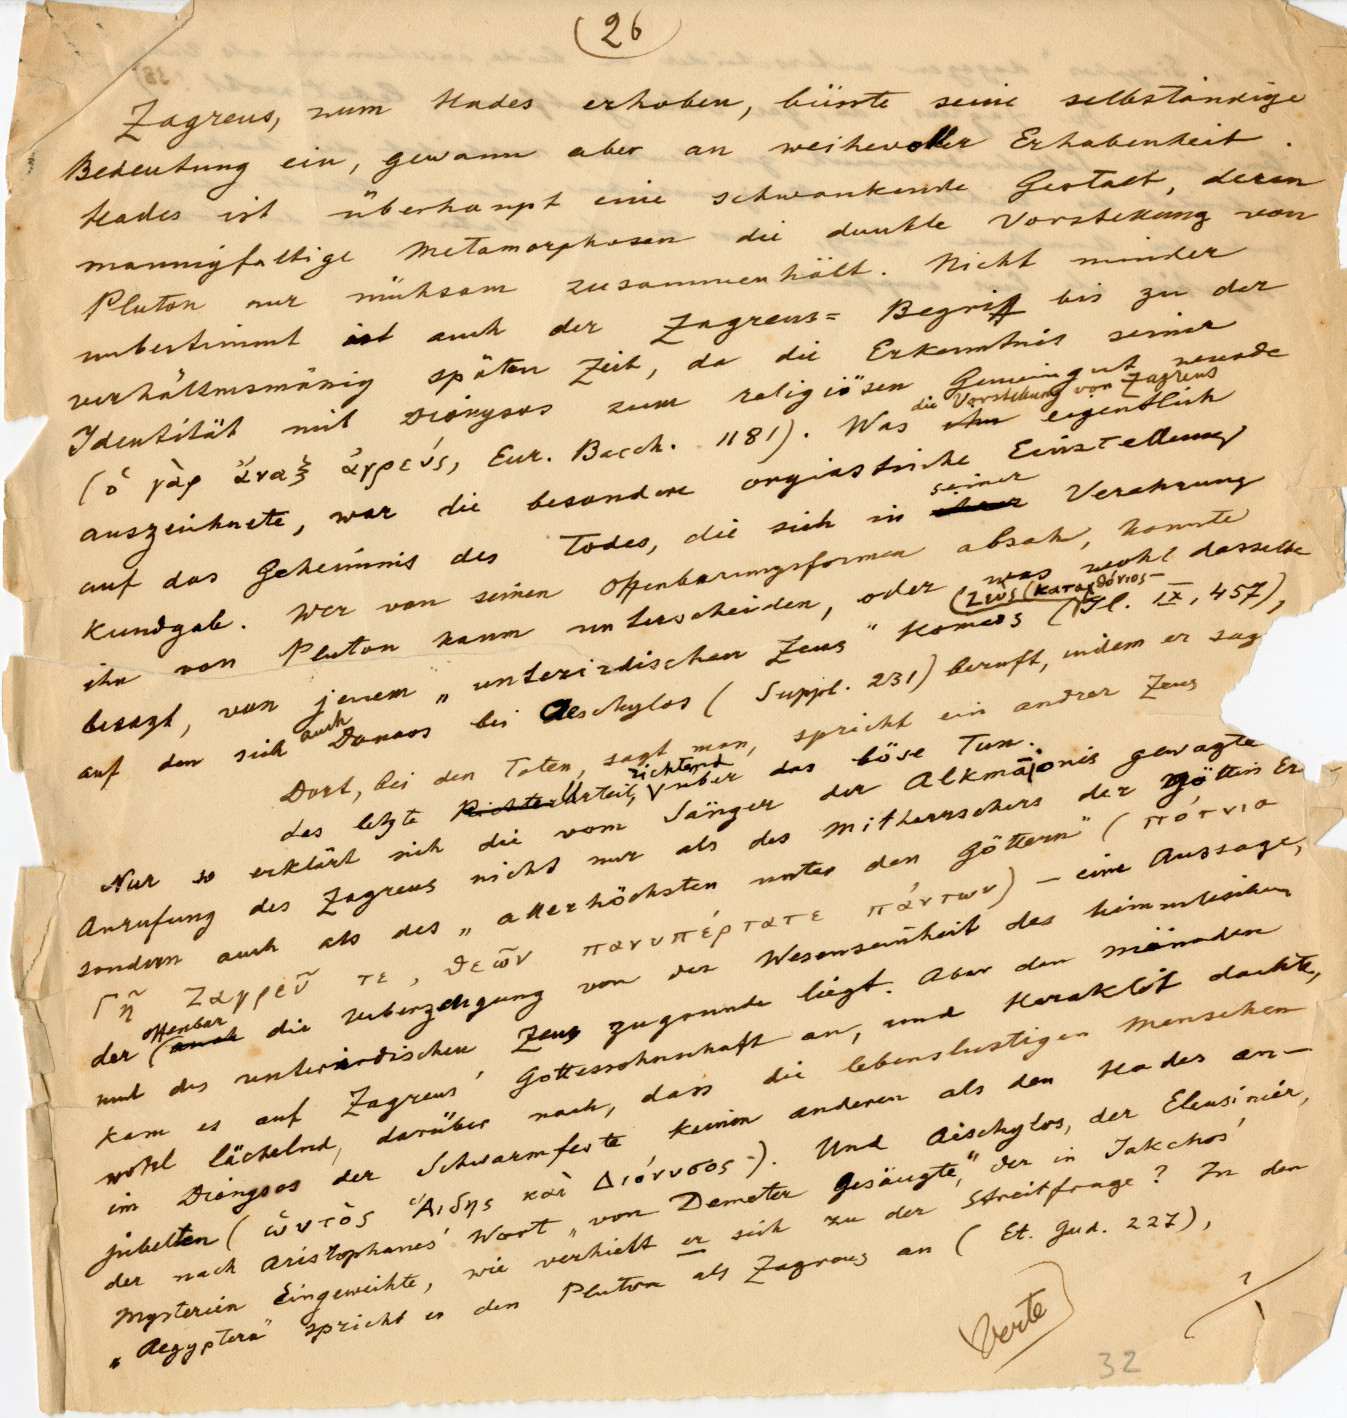 (26)
Zagreus, zum Hades erhoben, büsste seine selbständige
Bedeutung ein, gewann aber an weihevoller Erhabenheit.
Hades ist überhaupt eine schwankende Gestalt, deren
mannigfaltige Metamorphosen die dunkle Vorstellung von
Pluton nur mühsam zusammenhält. Nicht minder
unbestimmt ist auch der Zagreus= Begriff bis zu der
verhältnismässig späten Zeit, da die Erkenntnis seiner
Identität mit Dionysos zum religiösen Gemeingut wurde
(ὁ γὰρ ἄναξ ἀγρεύς, Eur. Bacch. 1181). Was die Vorstellung von Zagreus eigentlich
auszeichnete, war die besondere orgiastische Einstellung
auf das Geheimnis des Todes, die sich in seiner Verehrung
kundgab. Wer von seinen Offenbarungsformen absah, konnte
ihn von Pluton kaum unterscheiden, oder was wohl dasselbe
besagt, von jenem „unterirdischen Zeus" Homers (Ζεύς καταχθόνιος – Il. IX, 457),
auf den sich auch Danaos bei Aeschylos (Suppl. 231) beruft, indem er sag
Dort, bei den Toten, sagt man, spricht ein andrer Zeus
das letzte Urteil, richtend über das böse Tun.
Nur so erklärt sich die vom Sänger der Alkmäonis gewagte
Anrufung des Zagreus nicht nur als des Mitherrschers der Göttin Er
sondern auch als des „allerhöchsten unter den Göttern" (πότνια
Γῆ Ζαγρεῦ τε, θεῶν πανυπέρτατε πάντων) – eine Aussage,
der offenbar die Ueberzeugung von der Wesenseinheit des himmlischen
und des unterirdischen Zeus zugrunde liegt. Aber den Mänaden
kam es auf Zagreus' Gottessohnschaft an, und Heraklit dachte,
wohl lächelnd, darüber nach, dass die lebenslustigen Menschen
im Dionysos der Schwarmfeste keinen anderen als den Hades an-
jubelten (ὡυτὸς Ἀιδης καὶ Διόνυσος –). Und Aischylos, der Eleusinier,
der nach Aristophanes' Wort „von Demeter gesäugte", der in Iakchos'
Mysterien Eingeweihte, wie verhielt er sich zu der Streitfrage? In den
„Aegyptern" spricht er den Pluton als Zagreus an (Et. Gud. 227),
Verte
32